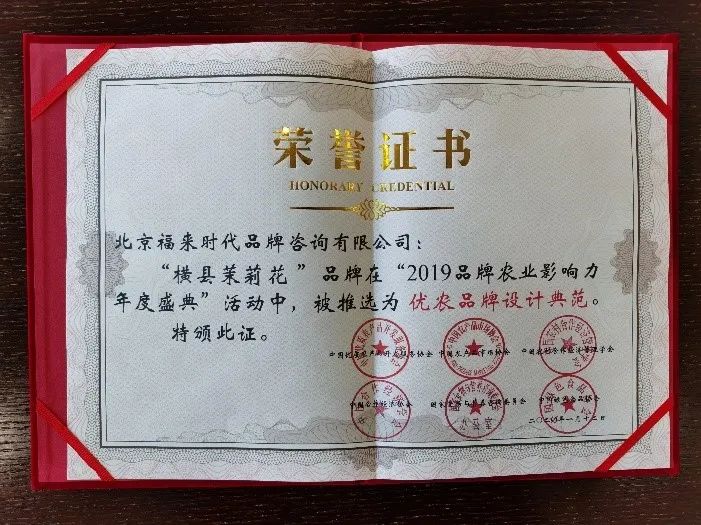 荣誉证书
HONORARY CREDENTIAL
北京福来时代品牌咨询有限公司：
“横县茉莉花”品牌在“2019品牌农业影响力
年度盛典”活动中，被推选为 优农品牌设计典范。
特颁此证。
中国优质农产品开发服务协会 中国农产品市场协会 中国农村合作经济管理学会
中国合作经济学会 中国绿色食品协会
二〇二〇年一月十二日